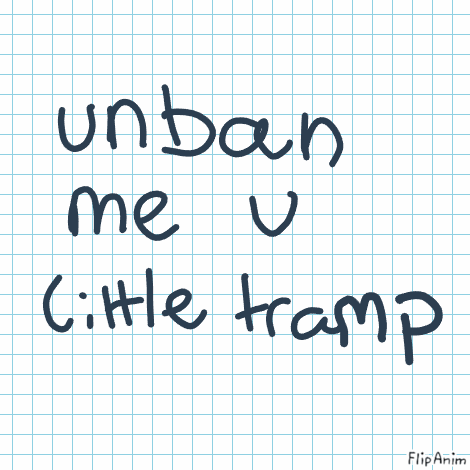 unban
me u
little tramp
FlipAnim